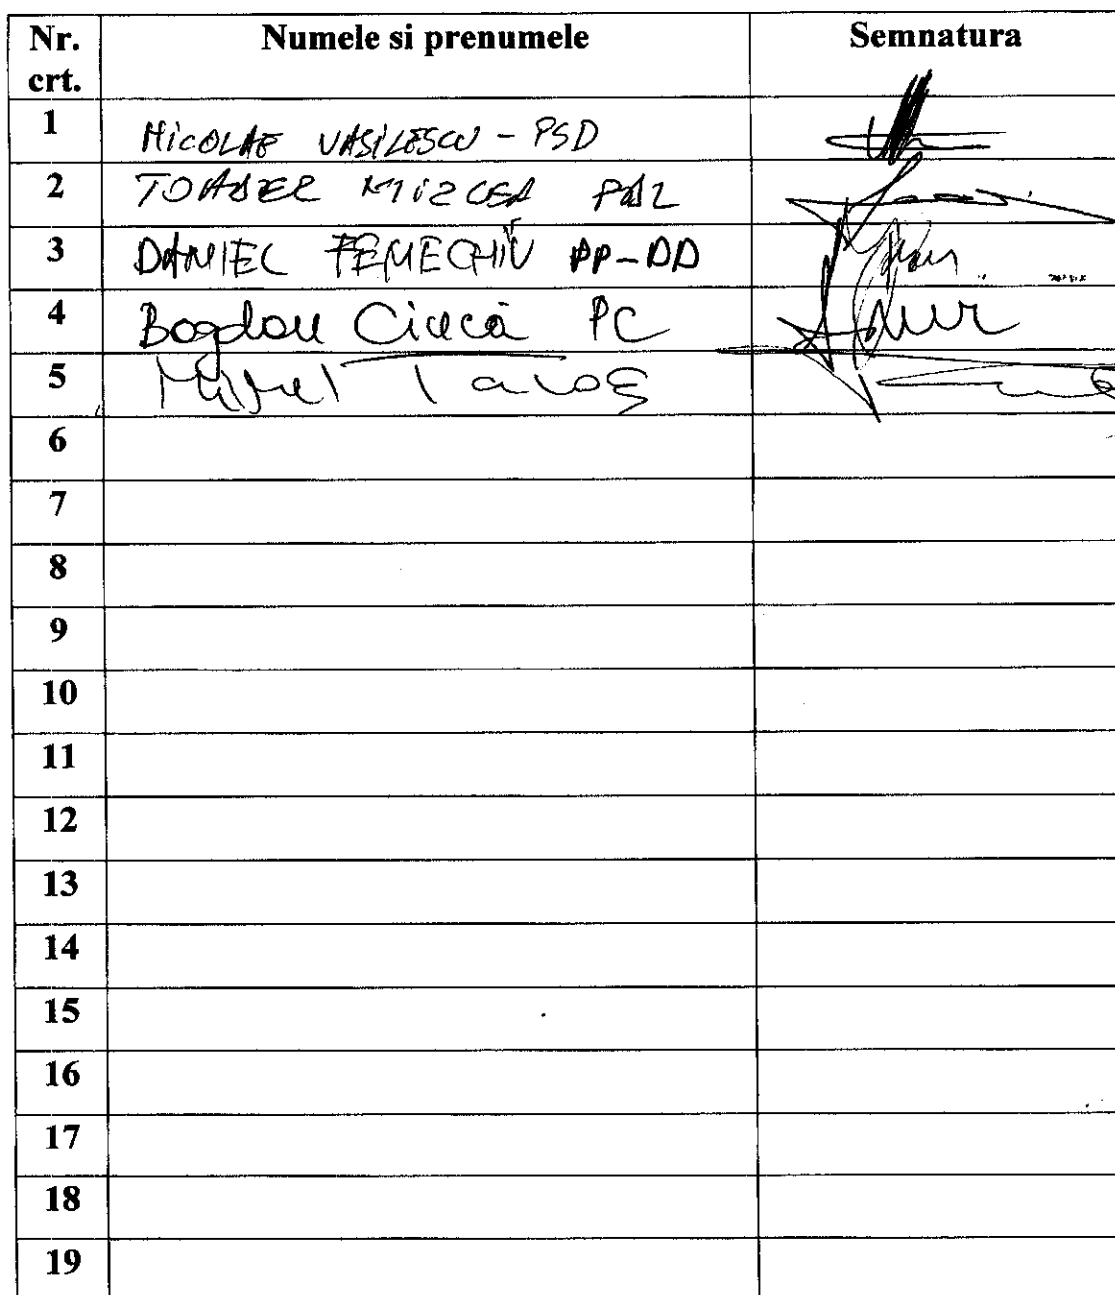 Nr. crt. Numele si prenumele Semnatura
1 NICOLAE VASILESCU - PSD
2 TOADER MIRCEA PDL
3 DANIEL PP-DD
4 Bogdan Ciucă PC
5
6
7
8
9
10
11
12
13
14
15
16
17
18
19